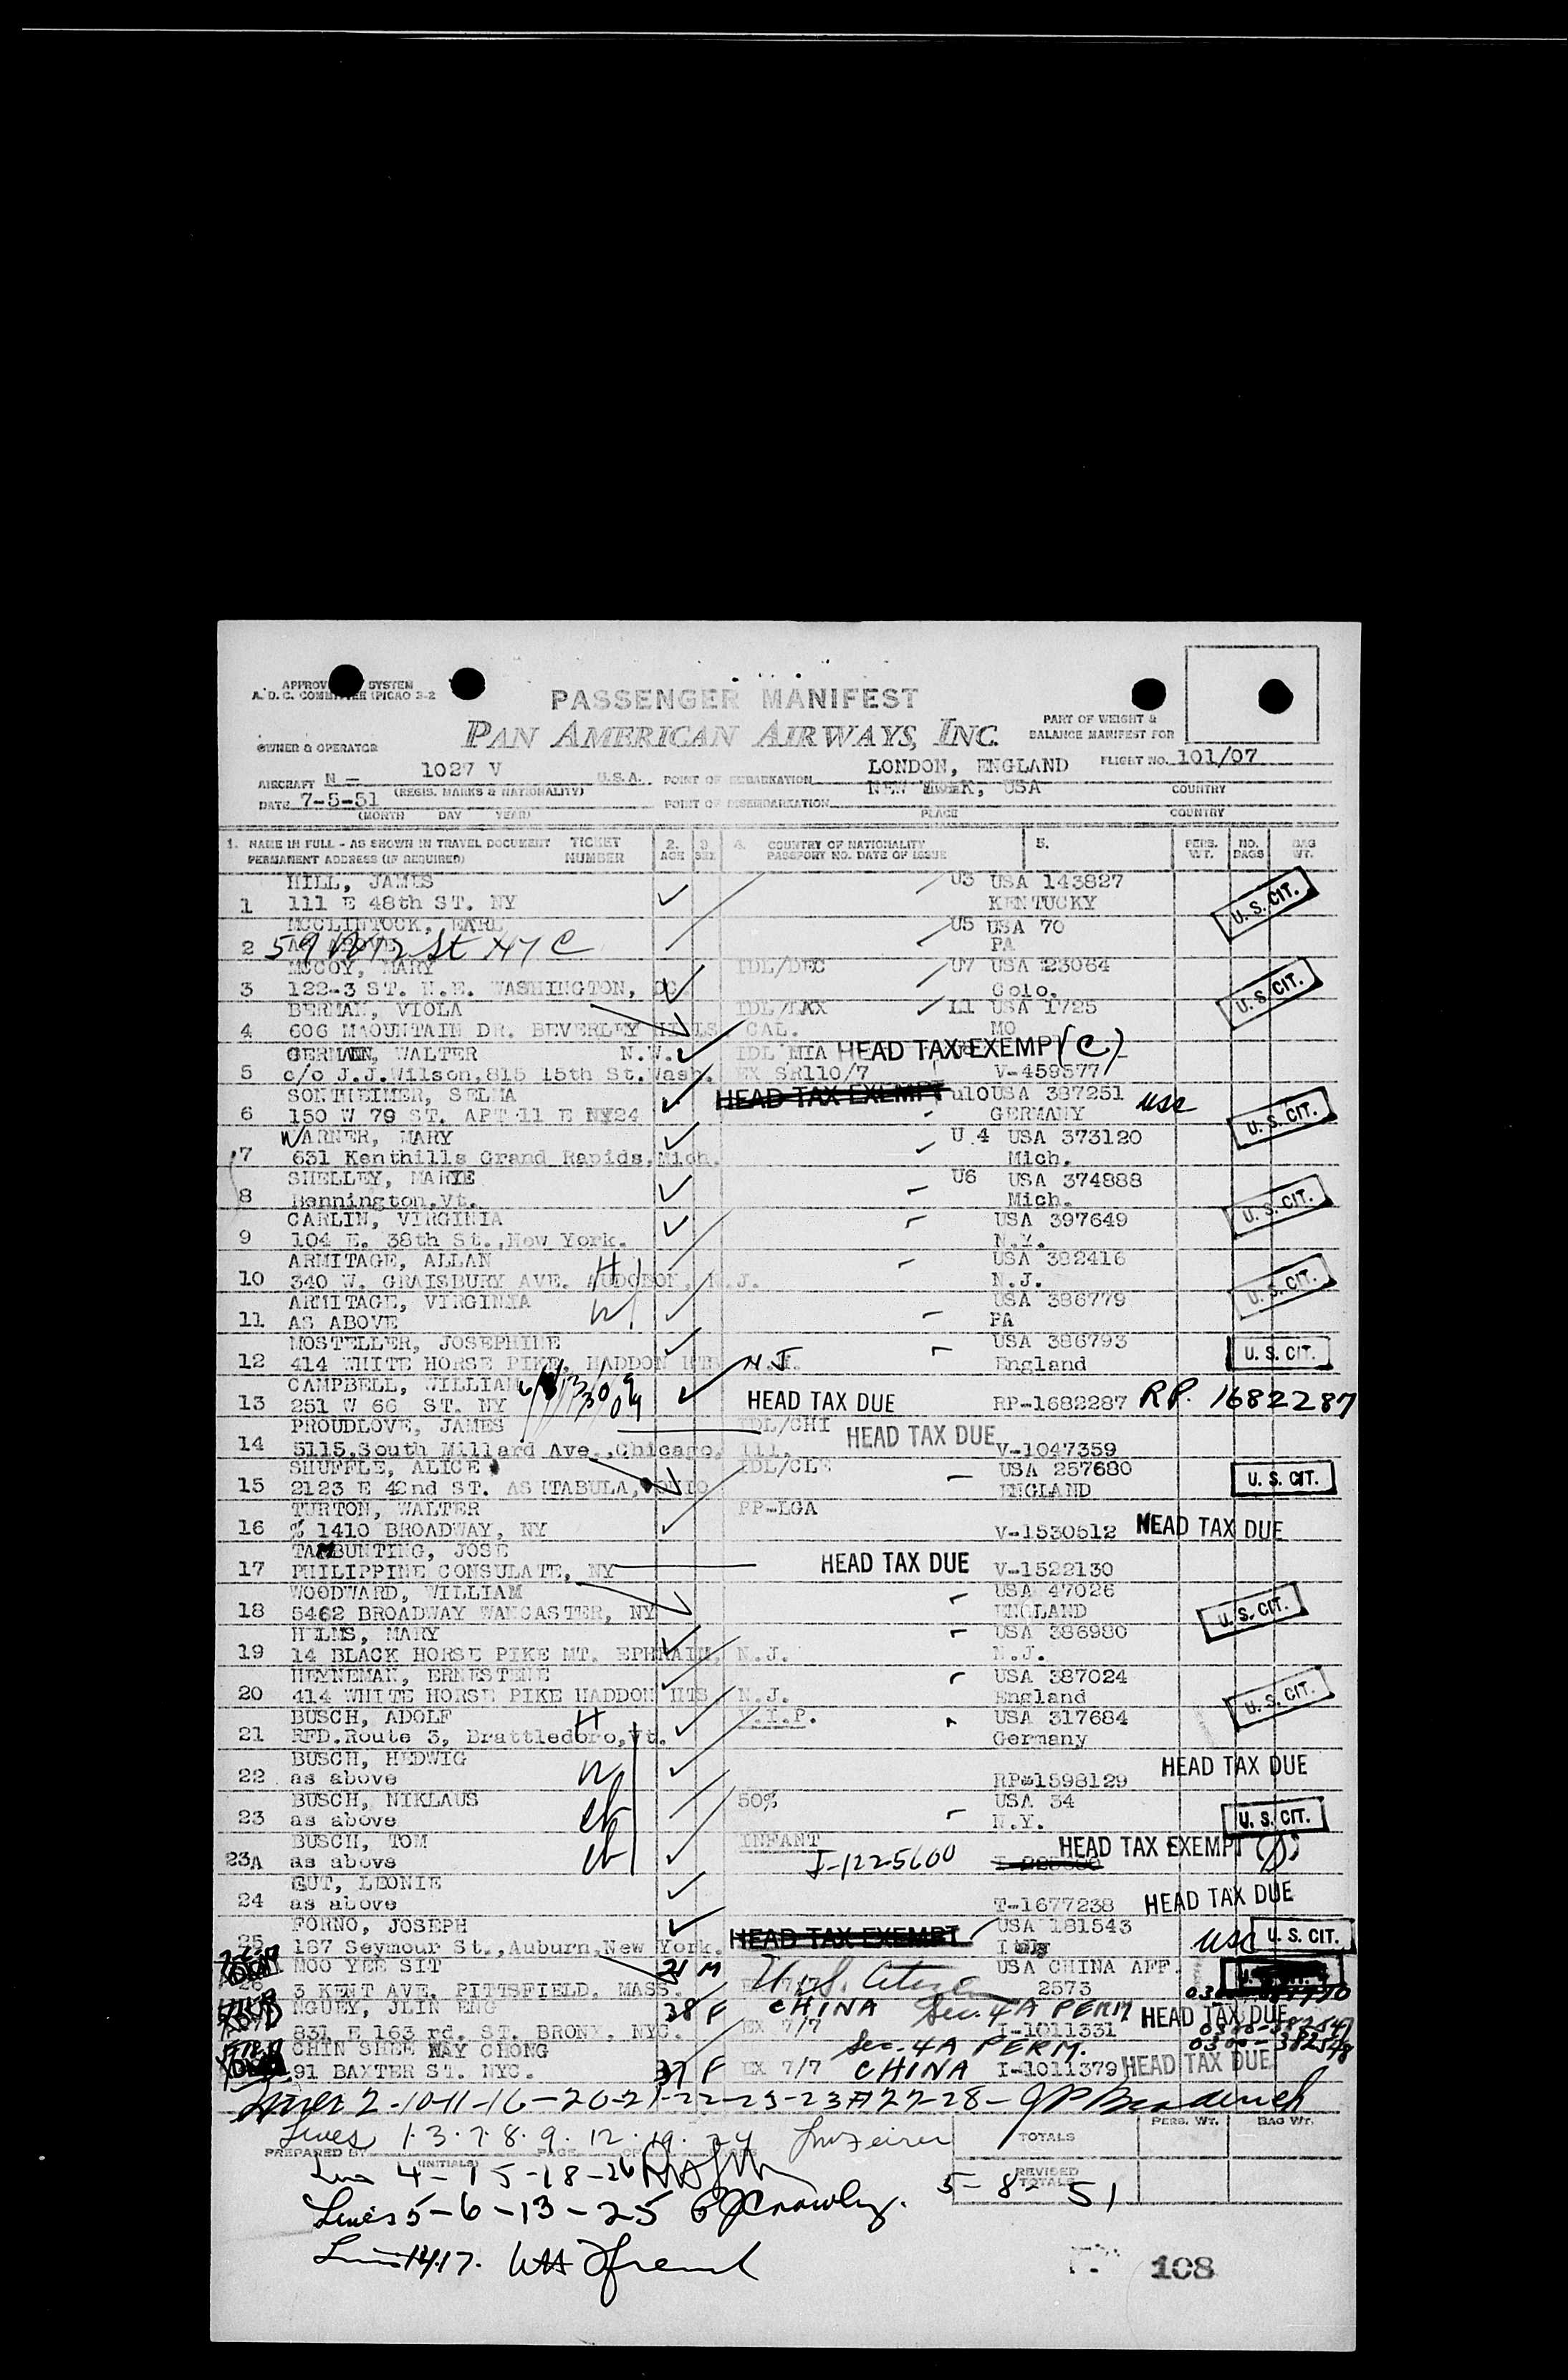 APPROV SYSTEM
A. D. C. COMMITTEE (PICAO 3-2
PASSENGER MANIFEST
PAN AMERICAN AIRWAYS, INC.
PART OF WEIGHT &
BALANCE MANIFEST FOR
OWNER & OPERATOR
FLIGHT NO. 101/07
AIRCRAFT N - 1027 V U.S.A. POINT OF EMBARKATION LONDON, ENGLAND
(REGIS. MARKS & NATIONALITY) COUNTRY
DATE 7-5-51 POINT OF DISEMBARKATION NEW YORK, USA
(MONTH DAY YEAR) PLACE COUNTRY
1. NAME IN FULL - AS SHOWN IN TRAVEL DOCUMENT TICKET 2. 3 4. COUNTRY OF NATIONALITY 5. PERS. NO. BAG
PERMANENT ADDRESS (IF REQUIRED) NUMBER AGE SEX PASSPORT NO. DATE OF ISSUE WT. BAGS WT.
HILL, JAMES U3 USA 143827
1 111 E 48th ST. NY KENTUCKY U. S. CIT.
MCCLINTOCK, EARL U5 USA 70
2 AS ABOVE 59 W 12 St NYC PA
MCCOY, MARY IDL/DEC U7 USA 123064
3 122-3 ST. N.E. WASHINGTON, DC. Colo. U. S. CIT.
BERMAN, VIOLA IDL/LAX L1 USA 1725
4 606 MAOUNTAIN DR. BEVERLEY HILLS CAL. MO
GERMAIN, WALTER N.W. IDL MIA HEAD TAX EXEMPT (C)
5 c/o J.J.Wilson,815 15th St.Wash. EX SR110/7 V-459577
SONTHEIMER, SELMA HEAD TAX EXEMPT u10USA 387251 usc
6 150 W 79 ST. APT 11 E NY24 GERMANY U. S. CIT.
WARNER, MARY U 4 USA 373120
7 631 Kenthills Grand Rapids,Mich. Mich.
SHELLEY, MARYE U6 USA 374888
8 Bennington,Vt. Mich. U. S. CIT.
CARLIN, VIRGINIA USA 397649
9 104 E. 38th St.,New York. N.Y.
ARMITAGE, ALLAN H USA 392416
10 340 W. GRAISBURY AVE. AUDOBON, N.J. N.J. U. S. CIT.
ARMITAGE, VIRGINIA W USA 386779
11 AS ABOVE PA
MOSTELLER, JOSEPHINE USA 386793
12 414 WHITE HORSE PIKE, HADDON HTS N.J. England U. S. CIT.
CAMPBELL, WILLIAM
13 251 W 66 ST. NY HEAD TAX DUE RP-1682287 RP. 1682287
PROUDLOVE, JAMES IDL/CHI HEAD TAX DUE
14 5115,South Millard Ave.,Chicago, Ill. V-1047359
SHUFFLE, ALICE IDL/CLE USA 257680
15 2123 E 42nd ST. ASHTABULA, OHIO ENGLAND U. S. CIT.
TURTON, WALTER PP-LGA
16 % 1410 BROADWAY, NY V-1530512 HEAD TAX DUE
TAMBUNTING, JOSE
17 PHILIPPINE CONSULATE, NY HEAD TAX DUE V-1522130
WOODWARD, WILLIAM USA 47026
18 5462 BROADWAY WANCASTER, NY ENGLAND U. S. CIT.
HELMS, MARY USA 386980
19 14 BLACK HORSE PIKE MT. EPHRAIM, N.J. N.J.
HEYNEMAN, ERNESTENE USA 387024
20 414 WHITE HORSE PIKE HADDON HTS N.J. England U. S. CIT.
BUSCH, ADOLF H V.I.P. USA 317684
21 RFD.Route 3, Brattledoro,Vt. Germany
BUSCH, HEDWIG W HEAD TAX DUE
22 as above RP-1598129
BUSCH, NIKLAUS ch 50% USA 34
23 as above N.Y. U. S. CIT.
BUSCH, TOM ch INFANT HEAD TAX EXEMPT
23A as above I-1225600
GUT, LEONIE
24 as above T-1677238 HEAD TAX DUE
FORNO, JOSEPH HEAD TAX EXEMPT USA 181543
25 187 Seymour St.,Auburn,New York. usc U. S. CIT.
MOO YEE SIT 21 M U.S. Citizen USA CHINA AFF.
26 3 KENT AVE. PITTSFIELD, MASS. 2573
NGUEY, JLIN ENG 38 F CHINA Sec. 4A PERM HEAD TAX DUE
831 E 163 rd. ST. BRONX, NYC. EX 7/7 I-1011331 0300-382547
CHIN SHEE WAY CHONG Sec. 4A PERM. 0300-382548
91 BAXTER ST. NYC. 37 F EX 7/7 CHINA I-1011379 HEAD TAX DUE
Lines 2-10-11-16-20-21-22-23-23A 27-28-
PERS. WT. BAG WT.
Lines 1.3.7.8.9.12.19.24 TOTALS
PREPARED BY PAGE OF PAGES
(INITIALS) REVISED TOTALS
Lines 4-15-18-26 5-8-51
Lines 5-6-13-25
Lines 14.17.
108